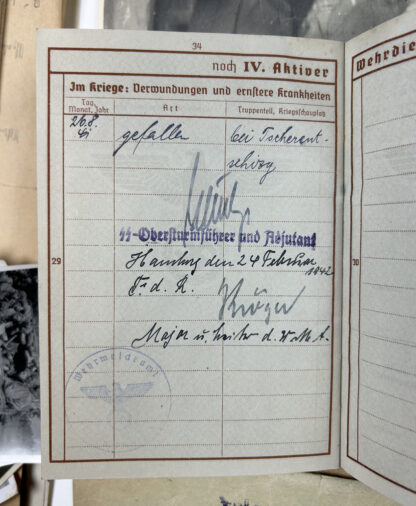 34
noch IV. Aktiver
Im Kriege: Verwundungen und ernstere Krankheiten
Tag, Monat, Jahr
Art
Truppenteil, Kriegsschauplatz
26.8. 41 gefallen bei Tscherent-
schizy
SS-Obersturmführer und Adjutant
Hamburg den 24 Februar 1942
F. d. R.
Kröger
Major u. Leiter d. W.M.A.
29
Wehrmeldeamt
Wehrdie
30